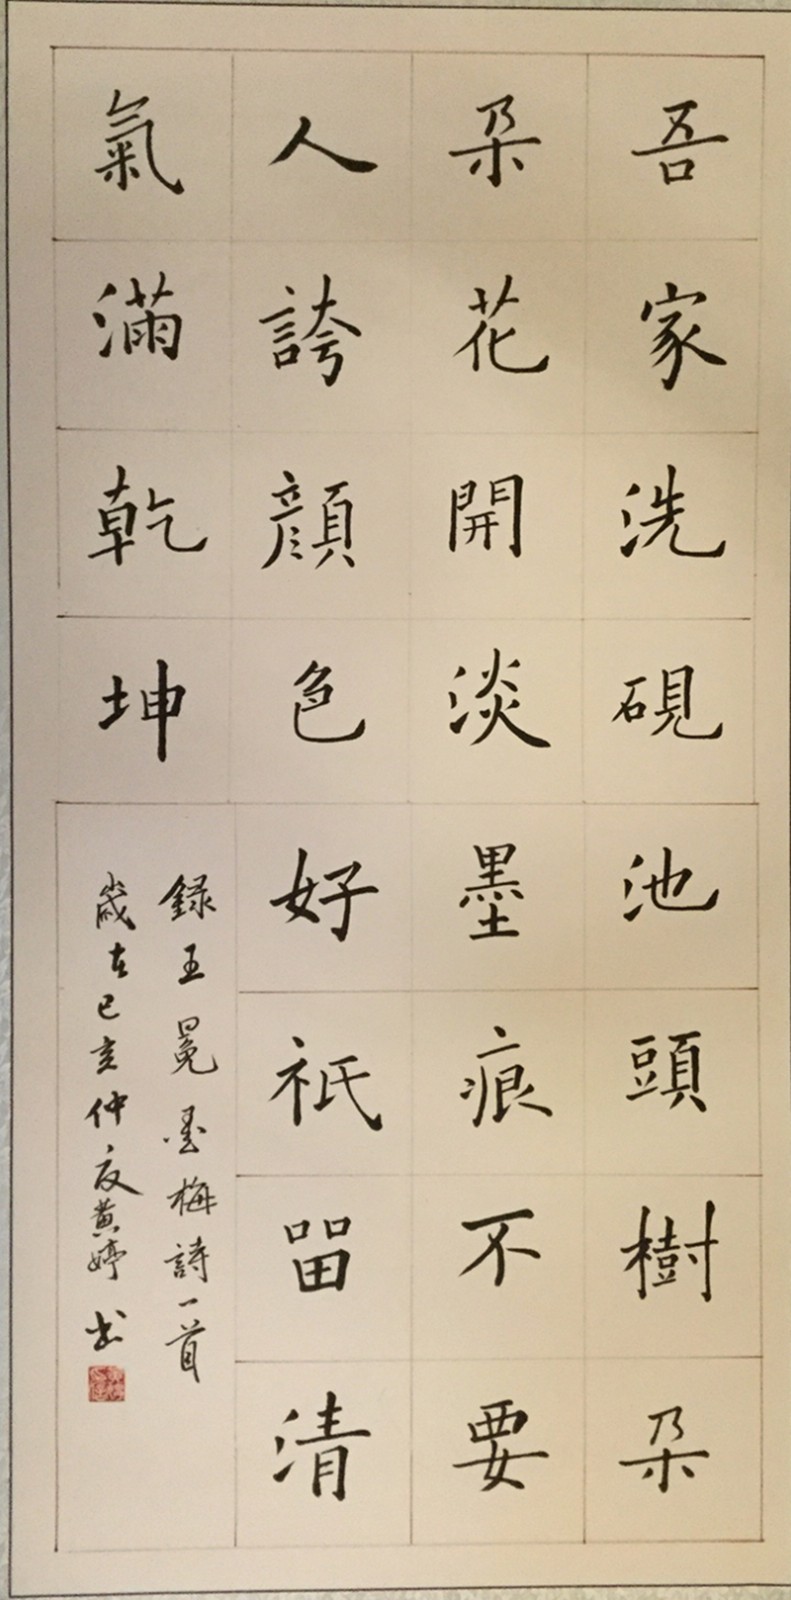 吾家洗硯池頭樹朶
朶花開淡墨痕不要
人誇顔色好祇留清
氣滿乾坤
録王冕墨梅詩一首
歲在己亥仲夏黄婷书